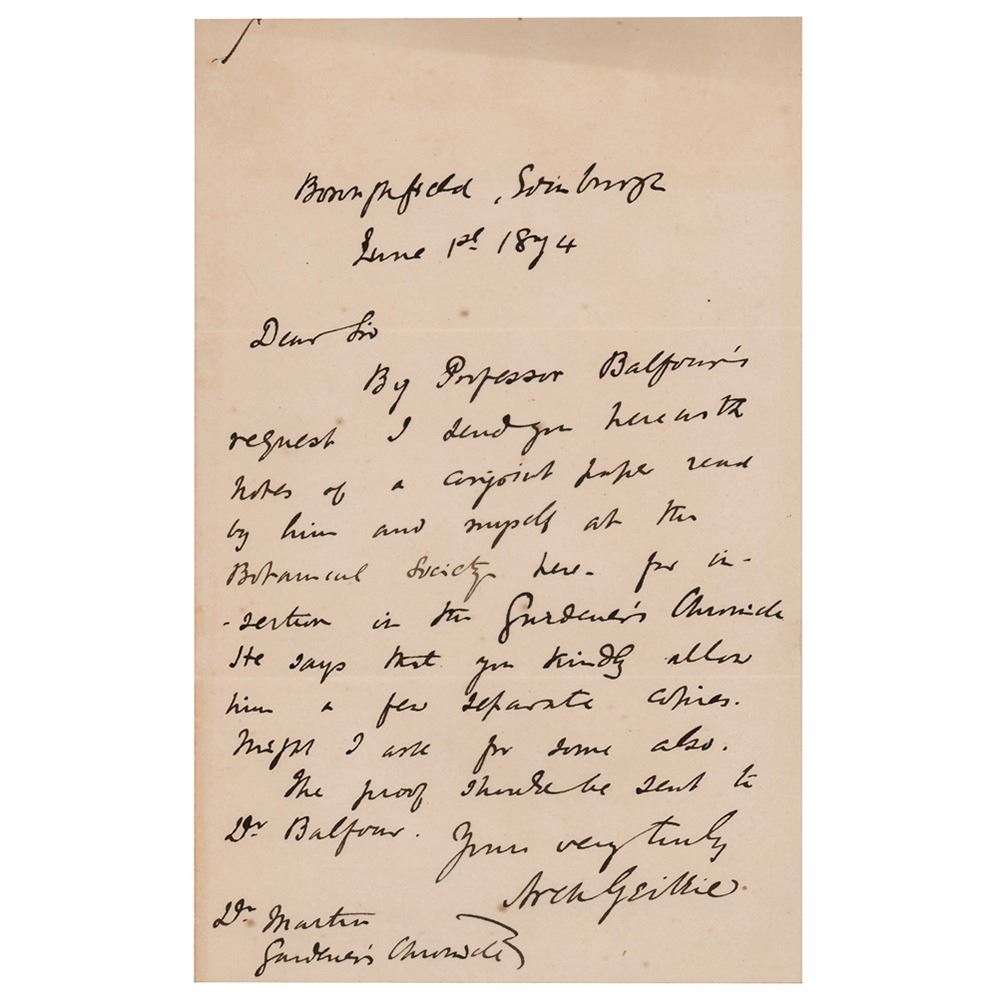 Boroughfield, Edinburgh
June 1st 1874
Dear Sir
By Professor Balfour's
request I send you herewith
notes of a conjoint paper read
by him and myself at the
Botanical Society here - for in-
-sertion in the Gardener's Chronicle
He says that you kindly allow
him a few separate copies.
Might I ask for some also.
The proof should be sent to
Dr Balfour.
Yours very truly
Arch Geikie
Dr
Gardener's Chronicle